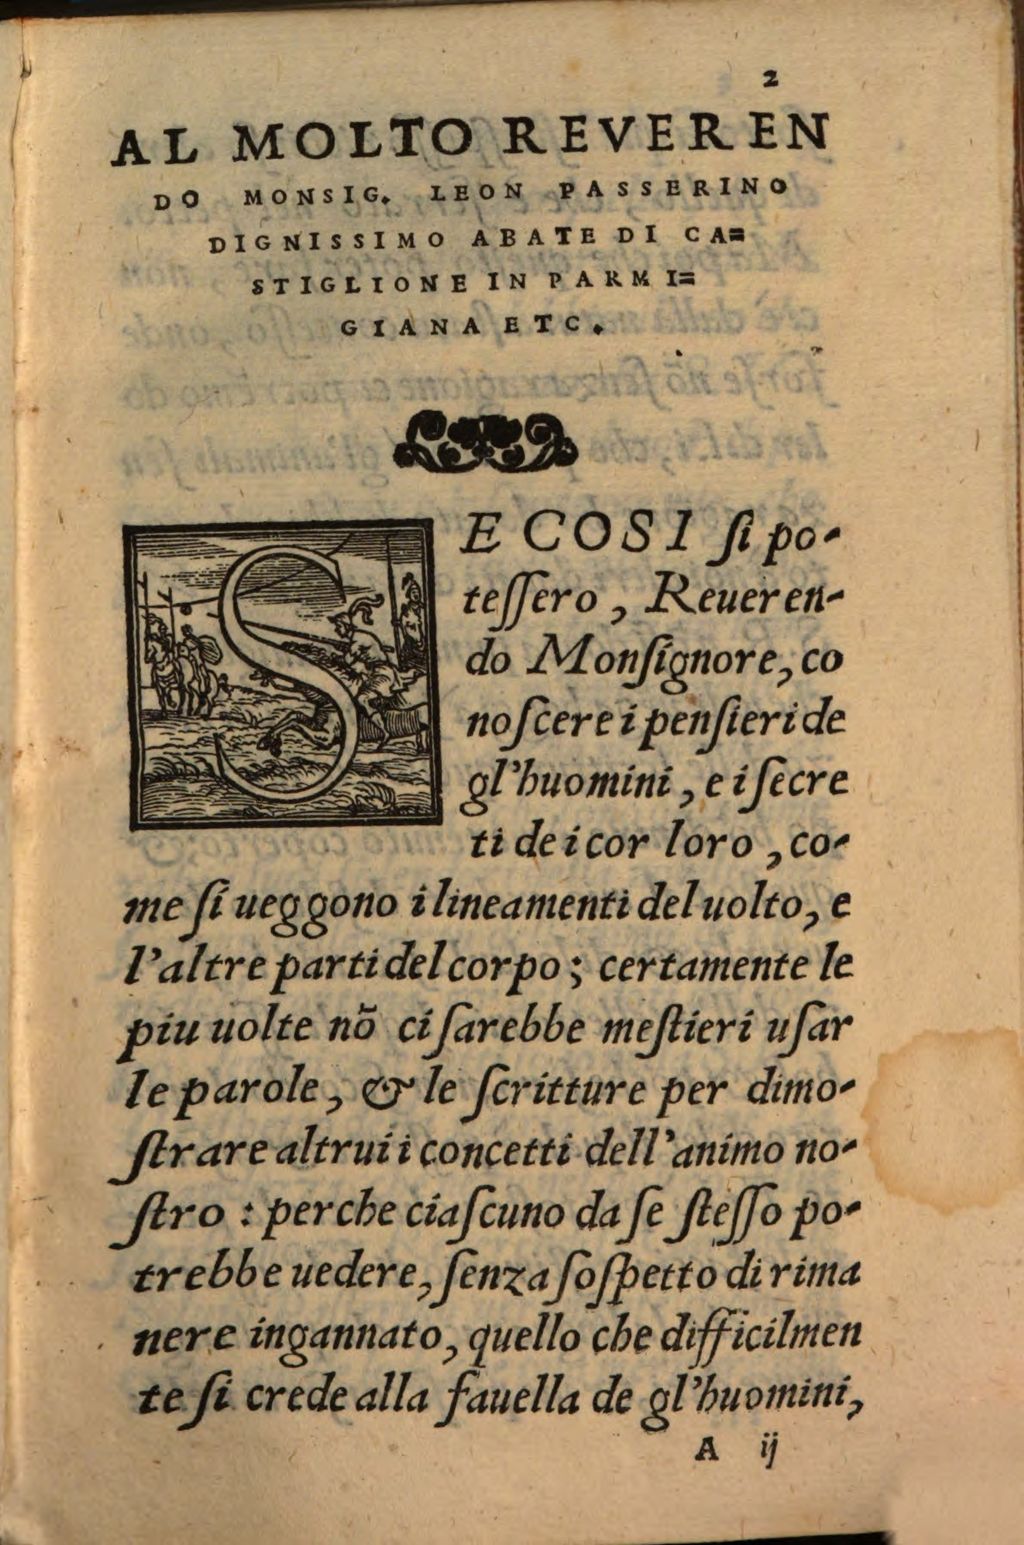 2
AL MOLTO REVEREN
DO MONSIG. LEON PASSERINO
DIGNISSIMO ABATE DI CA=
STIGLIONE IN PARMI=
GIANA ETC.
SE COSI ſi po-
teſſero, Reueren-
do Monſignore, co
noſcere i penſieri de
gl'huomini, e i ſecre
ti de i cor loro, co-
me ſi ueggono i lineamenti del uolto, e
l'altre parti del corpo; certamente le
piu uolte nõ ci ſarebbe meſtieri uſar
le parole, & le ſcritture per dimo-
ſtrare altrui i concetti dell'animo no-
ſtro: perche ciaſcuno da ſe ſteſſo po-
trebbe uedere, ſenza ſoſpetto di rima
nere ingannato, quello che difficilmen
te ſi crede alla fauella de gl'huomini,
A ij